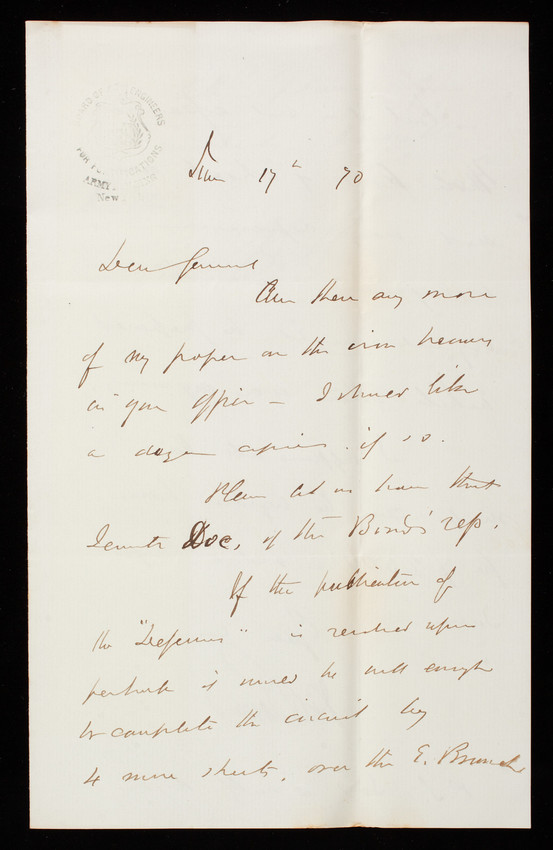 BOARD OF ENGINEERS
FOR FORTIFICATIONS
ARMY
New
17th 70
Dear General
Are there any more
of my paper on the iron
in your office — I should like
a dozen copies if so.
Please let us have that
Senate Doc, of the Board's rep.
If the publication of
the "Defenses" is resolved upon
perhaps it would be well enough
to complete the circuit by
4 more sheets, over the E. Branch